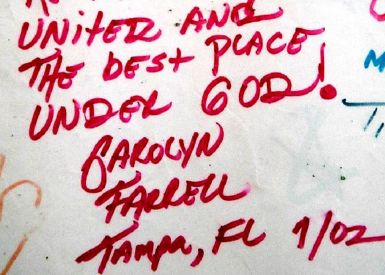 UNITED AND
THE BEST PLACE
UNDER GOD!
CAROLYN
FARRELL
TAMPA, FL 1/02